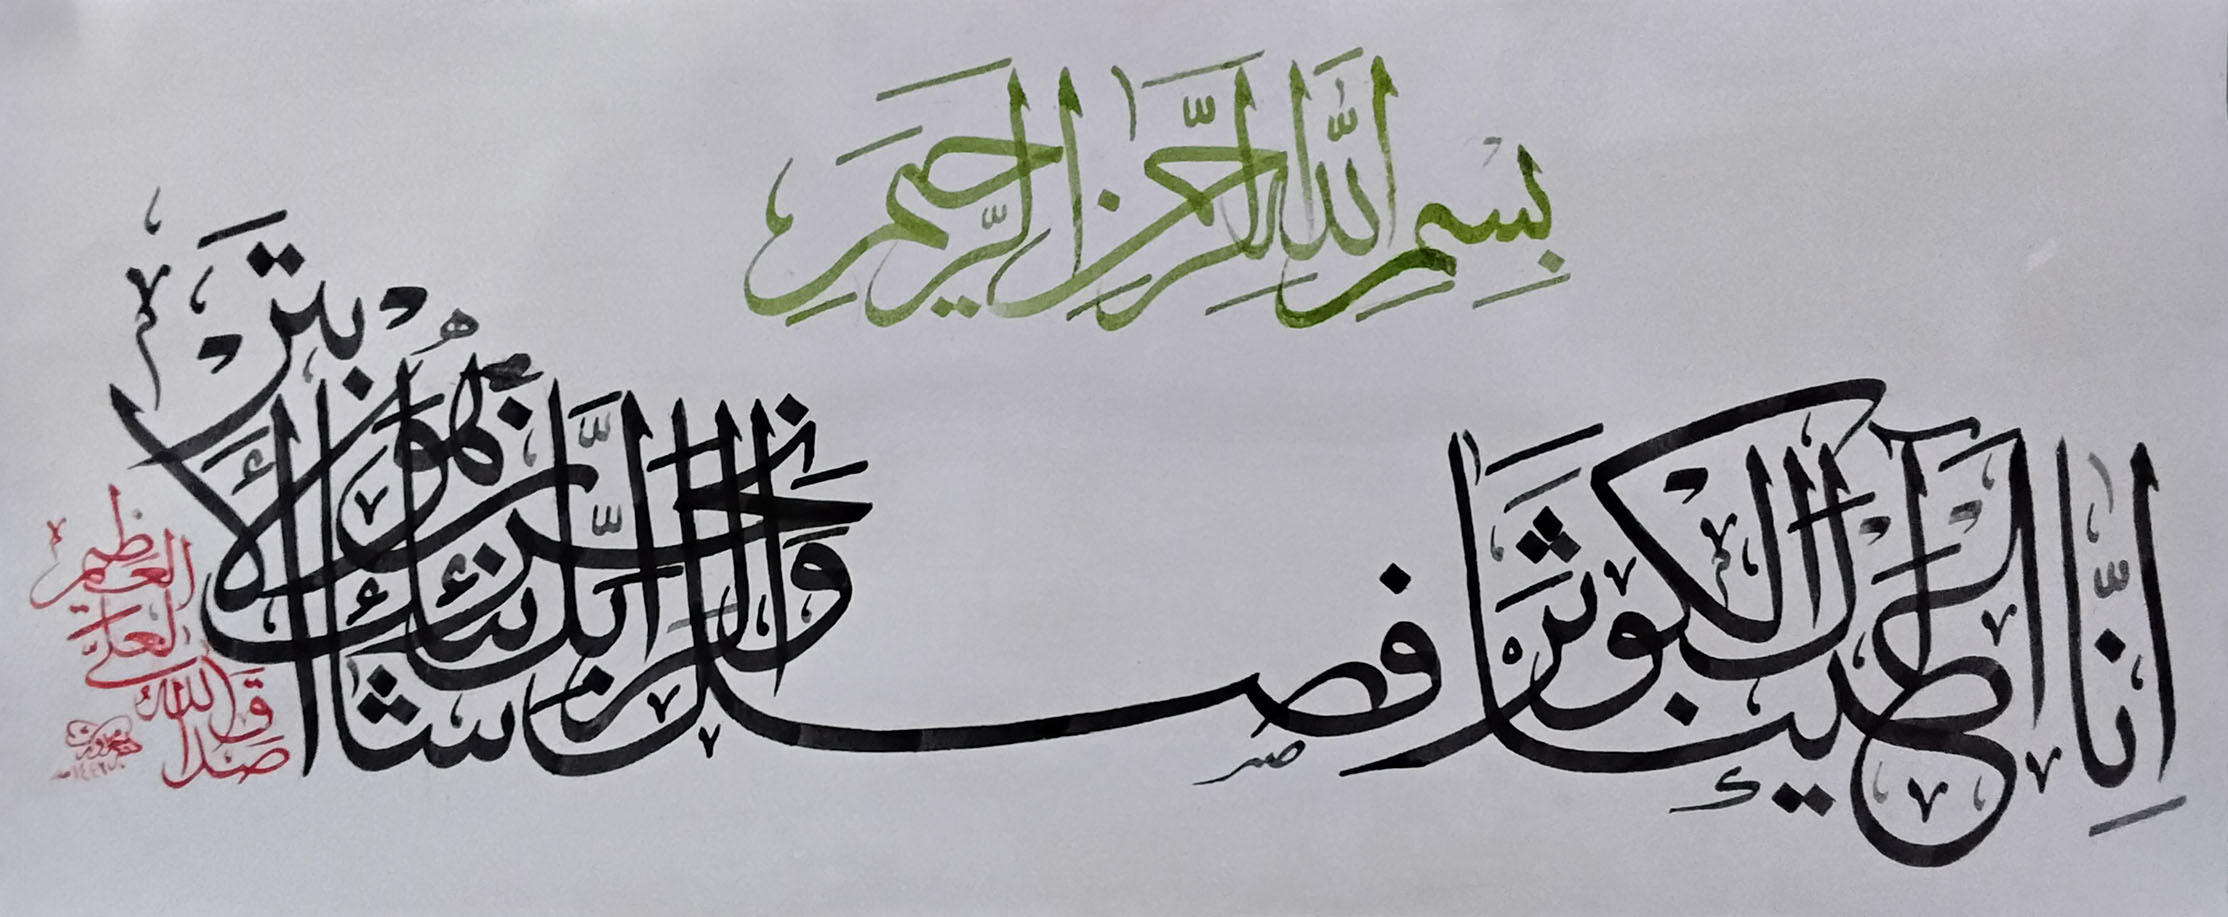 بِسْمِ اللَّهِ الرَّحْمَٰنِ الرَّحِيمِ
إِنَّا أَعْطَيْنَاكَ الْكَوْثَرَ فَصَلِّ لِرَبِّكَ وَانْحَرْ إِنَّ شَانِئَكَ هُوَ الْأَبْتَرُ
صَدَقَ اللَّهُ الْعَلِيُّ الْعَظِيمُ